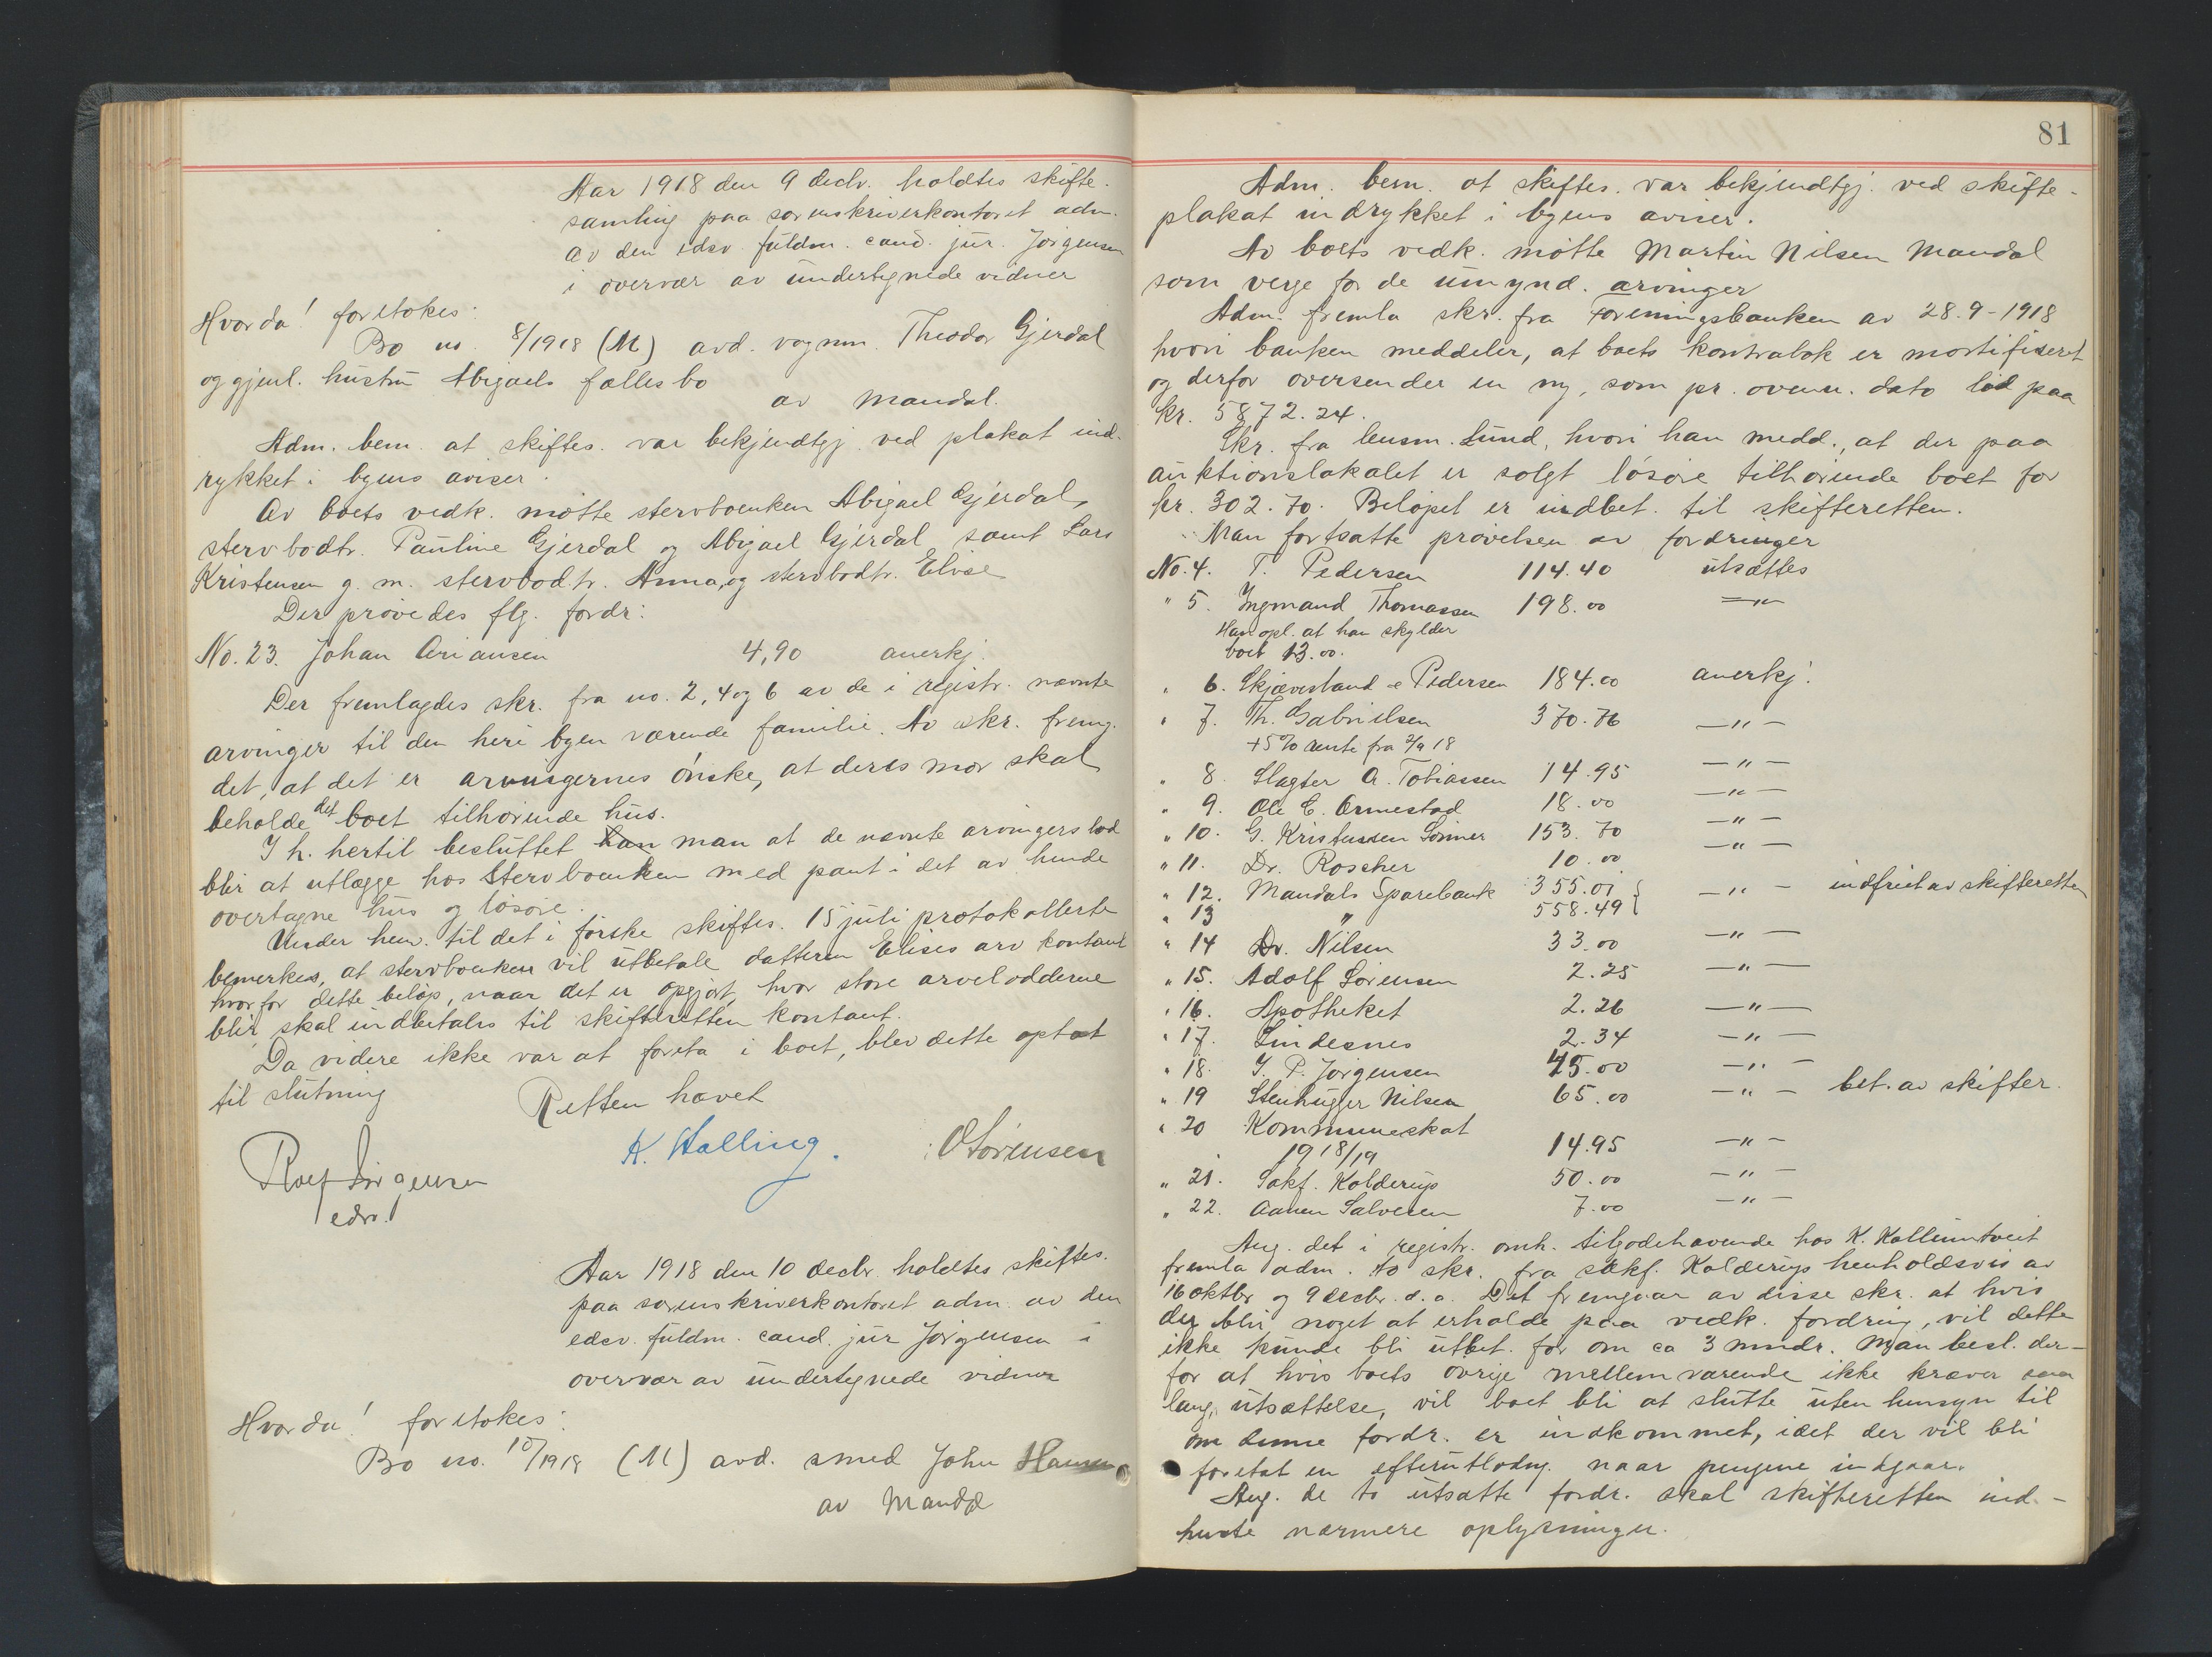 Aar 1918 den 9 decbr. holdtes skifte-
samling paa sorenskriverkontoret adm.
av den edsv. fuldm. cand. jur. Jörgensen
i overvær av undertegnede vidner
Hvorda! foretokes:
Bo no. 8/1918 (M) avd. vognm. Theodor Gjerdal
og gjenl. hustru Abigaels fællesbo
av Mandal.
Adm. bem. at skiftes. var bekjendtgj. ved plakat ind-
rykket i byens aviser.
Av boets vedk. mötte stervboenken Abigael Gjerdal,
stervbodtr. Pauline Gjerdal og Abigael Gjerdal samt Lars
Kristensen g. m. stervbodtr. Anna, og stervbodtr. Elise
Der prövedes flg. fordr:
No. 23. Johan Oriansen 4,90 anerkj.
Der fremlagdes skr. fra no. 2, 4 og 6 av de i registr. nævnte
arvinger til den heri byen værende familie. Av skr. fremg.
det, at det er arvingernes önske, at deres mor skal
beholde det boet tilhörende hus.
I h. hertil besluttet han man at de nævnte arvingers lod
blir at utlægge hos Stervboenken med pant i det av hende
overtagne hus og lösöre.
Under henv. til det i förske skiftes. 15 juli protokollerte
bemerkes, at stervboenken vil utbetale datteren Elises arv kontant
hvorfor dette belöp, naar det er opgjort, hvor store arvelodderne
blir skal indbetales til skifteretten kontant.
Da videre ikke var at foreta i boet, blev dette optat
til slutning
Retten hævet
Rolf Jörgensen K. Halling. O Sörensen
edsv.
Aar 1918 den 10 decbr holdtes skiftes.
paa sorenskriverkontoret adm. av den
edsv. fuldm. cand. jur Jörgensen i
overvær av undertegnede vidner
Hvorda! foretokes:
Bo no. 10/1918 (M) avd. smed John Hansen
av Mandal
81
Adm. bem. at skiftes. var bekjendtgj. ved skifte-
plakat indrykket i byens aviser.
Av boets vedk. mötte Martin Nilsen Mandal
som verge for de umynd. arvinger
Adm. fremla skr. fra Foreningsbanken av 28.9-1918
hvori banken meddeler, at boets kontrabok er mortifiseret
og derfor oversender en ny, som pr. ovenn. dato löd paa
kr. 5872.24.
Skr. fra lensm. Lund, hvori han medd., at der paa
auktionslokalet er solgt lösöre tilhörende boet for
kr. 302.70. Belöpet er indbet. til skifteretten.
Man fortsatte prövelsen av fordringer
No. 4. T. Pedersen 114.40 utsættes
" 5. Ingmand Thomassen 198.00 —"—
Han opl. at han skylder
boet 13.00.
" 6. Skjævesland & Pedersen 184.00 anerkj.
" 7. Th. Gabrielsen 370.76 —"—
+5% rente fra 2/9 18
" 8. Slagter A. Tobiassen 14.95 —"—
" 9. Ole C. Ormestad 18.00 —"—
" 10. G. Kristensen Sönner 153.70 —"—
" 11. Dr. Roscher 10.00 —"—
" 12. Mandals Sparebank 355.01 —"— indfriet av skifteretten
" 13 " 558.49
" 14 Dr. Nilsen 33.00 —"—
" 15. Adolf Sörensen 2.25 —"—
" 16. Apotheket 2.26 —"—
" 17. Lindesnes 2.34 —"—
" 18. J. P. Jörgensen 45.00 —"—
" 19 Stenhugger Nilsen 65.00 —"— bet. av skifter.
" 20 Kommuneskat
1918/19 14.95 —"—
" 21. Sakf. Kolderup 50.00 —"—
" 22. Aanen Salvesen 7.00 —"—
Ang. det i registr. omh. tilgodehavende hos K. Kallumtveit
fremla adm. to skr. fra sakf. Kolderup henholdsvis av
16 oktbr og 9 decbr. d. a. Det fremgaar av disse skr. at hvis
der blir noget at erholde paa vedk. fordring, vil dette
ikke kunde bli utbet. för om ca 3 mndr. Man besl. der-
for at hvis boets övrige mellemværende ikke kræver saa
lang utsættelse, vil boet bli at slutte uten hensyn til
om denne fordr. er indkommet, idet der vil bli
foretat en efterutlodng. naar pengene indgaar.
Ang. de to utsatte fordr. skal skifteretten ind-
hente nærmere oplysninger.